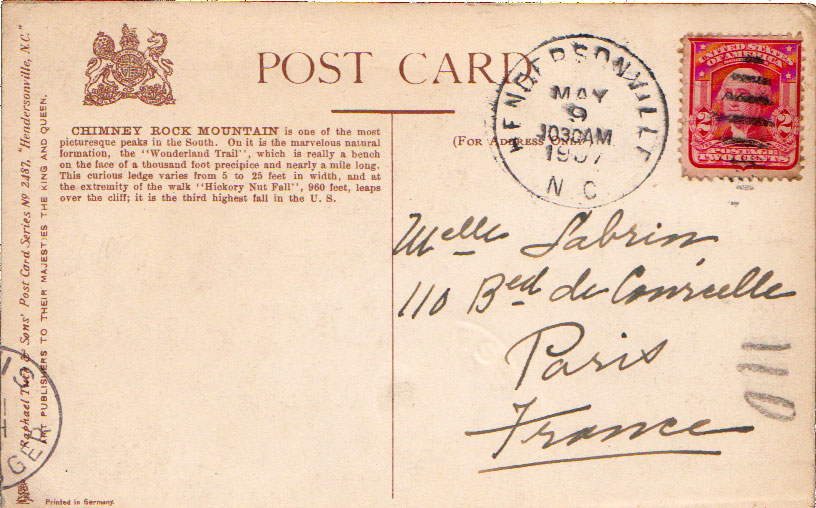 POST CARD
CHIMNEY ROCK MOUNTAIN is one of the most
picturesque peaks in the South. On it is the marvelous natural
formation, the "Wonderland Trail", which is really a bench
on the face of a thousand foot precipice and nearly a mile long.
This curious ledge varies from 5 to 25 feet in width, and at
the extremity of the walk "Hickory Nut Fall", 960 feet, leaps
over the cliff; it is the third highest fall in the U. S.
(FOR ADDRESS ONLY)
HENDERSONVILLE
MAY
9
1030AM
1907
N C
UNITED STATES
OF AMERICA
2 2
POSTAGE
TWO CENTS
Melle Sabrin
110 Bed de Courcelle
Paris
France
110
Raphael Tuck & Sons' Post Card Series No 2487, "Hendersonville, N.C."
ART PUBLISHERS TO THEIR MAJESTIES THE KING AND QUEEN.
GER
Printed in Germany.